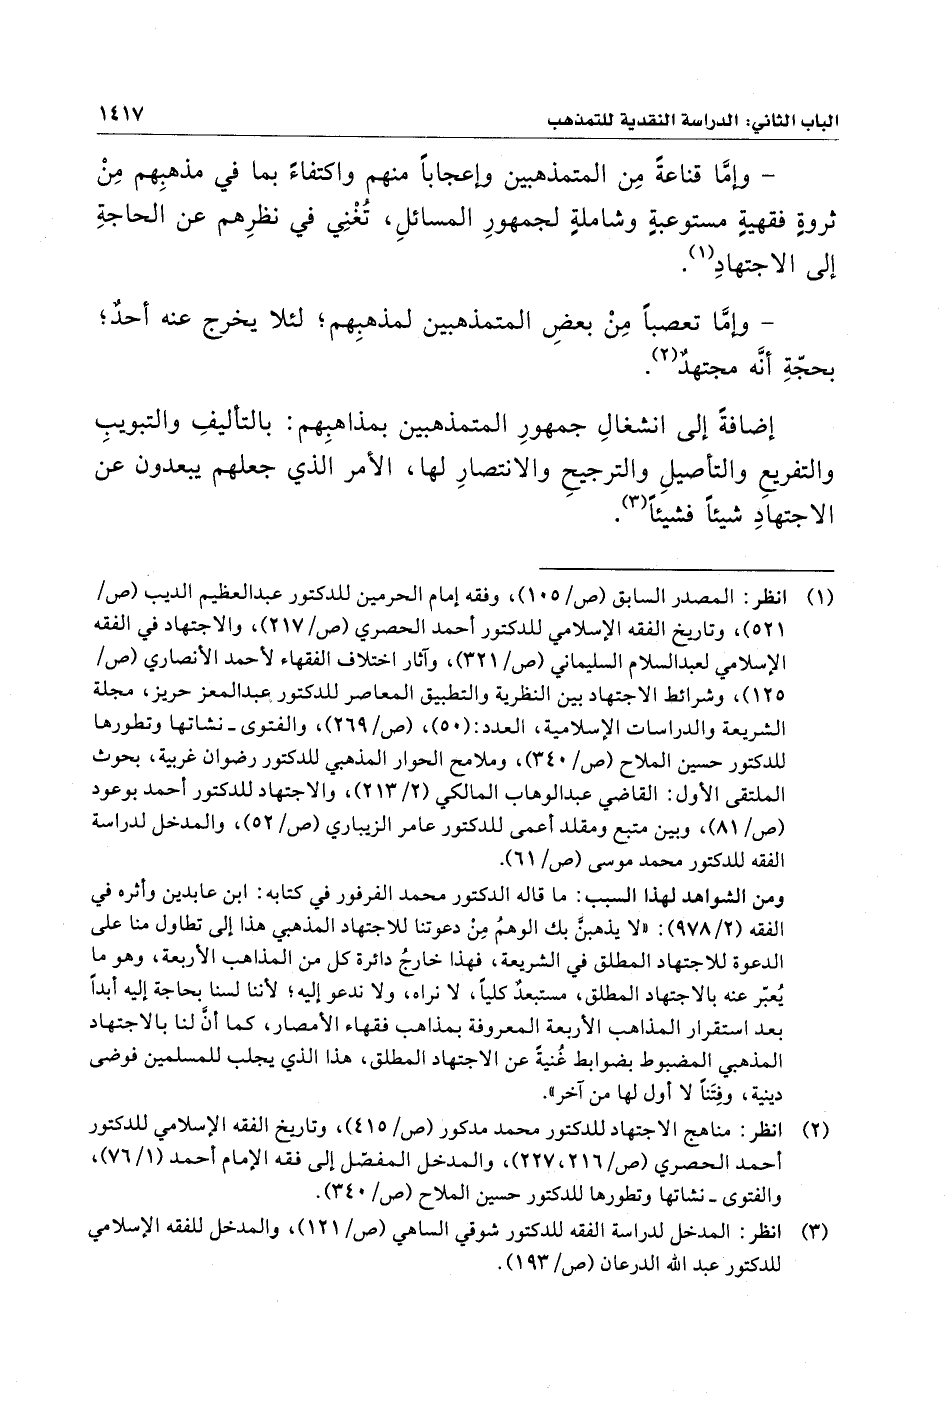 الباب الثاني: الدراسة النقدية للتمذهب ١٤١٧
- وإمَّا قناعةً مِن المتمذهبين وإعجاباً منهم واكتفاءً بما في مذهبِهم مِنْ
ثروةٍ فقهيةٍ مستوعبةٍ وشاملةٍ لجمهورِ المسائلِ، تُغْنِي في نظرِهم عن الحاجةِ
إلى الاجتهادِ(١).
- وإمَّا تعصباً مِنْ بعضِ المتمذهبين لمذهبِهم؛ لئلا يخرج عنه أحدٌ؛
بحجّةِ أنَّه مجتهدٌ(٢).
إضافةً إلى انشغالِ جمهورِ المتمذهبين بمذاهبِهم: بالتأليفِ والتبويبِ
والتفريعِ والتأصيلِ والترجيحِ والانتصارِ لها، الأمر الذي جعلهم يبعدون عن
الاجتهادِ شيئاً فشيئاً(٣).
(١) انظر: المصدر السابق (ص/ ١٠٥)، وفقه إمام الحرمين للدكتور عبدالعظيم الديب (ص/
٥٢١)، وتاريخ الفقه الإسلامي للدكتور أحمد الحصري (ص/ ٢١٧)، والاجتهاد في الفقه
الإسلامي لعبدالسلام السليماني (ص/ ٣٢١)، وآثار اختلاف الفقهاء لأحمد الأنصاري (ص/
١٢٥)، وشرائط الاجتهاد بين النظرية والتطبيق المعاصر للدكتور عبدالمعز حريز، مجلة
الشريعة والدراسات الإسلامية، العدد: (٥٠)، (ص/ ٢٦٩)، والفتوى ـ نشاتها وتطورها
للدكتور حسين الملاح (ص/ ٣٤٠)، وملامح الحوار المذهبي للدكتور رضوان غربية، بحوث
الملتقى الأول: القاضي عبدالوهاب المالكي (٢/ ٢١٣)، والاجتهاد للدكتور أحمد بوعود
(ص/ ٨١)، وبين متبع ومقلد أعمى للدكتور عامر الزيباري (ص/ ٥٢)، والمدخل لدراسة
الفقه للدكتور محمد موسى (ص/ ٦١).
ومن الشواهد لهذا السبب: ما قاله الدكتور محمد الفرفور في كتابه: ابن عابدين وأثره في
الفقه (٢/ ٩٧٨): «لا يذهبنَّ بك الوهمُ مِنْ دعوتنا للاجتهاد المذهبي هذا إلى تطاول منا على
الدعوة للاجتهاد المطلق في الشريعة، فهذا خارجُ دائرة كل من المذاهب الأربعة، وهو ما
يُعبّر عنه بالاجتهاد المطلق، مستبعدٌ كلياً، لا نراه، ولا ندعو إليه؛ لأننا لسنا بحاجة إليه أبداً
بعد استقرار المذاهب الأربعة المعروفة بمذاهب فقهاء الأمصار، كما أنَّ لنا بالاجتهاد
المذهبي المضبوط بضوابط غُنيةً عن الاجتهاد المطلق، هذا الذي يجلب للمسلمين فوضى
دينية، وفِتَناً لا أول لها من آخر».
(٢) انظر: مناهج الاجتهاد للدكتور محمد مدكور (ص/ ٤١٥)، وتاريخ الفقه الإسلامي للدكتور
أحمد الحصري (ص/ ٢١٦، ٢٢٧)، والمدخل المفصّل إلى فقه الإمام أحمد (١/ ٧٦)،
والفتوى ـ نشاتها وتطورها للدكتور حسين الملاح (ص/ ٣٤٠).
(٣) انظر: المدخل لدراسة الفقه للدكتور شوقي الساهي (ص/ ١٢١)، والمدخل للفقه الإسلامي
للدكتور عبد الله الدرعان (ص/ ١٩٣).